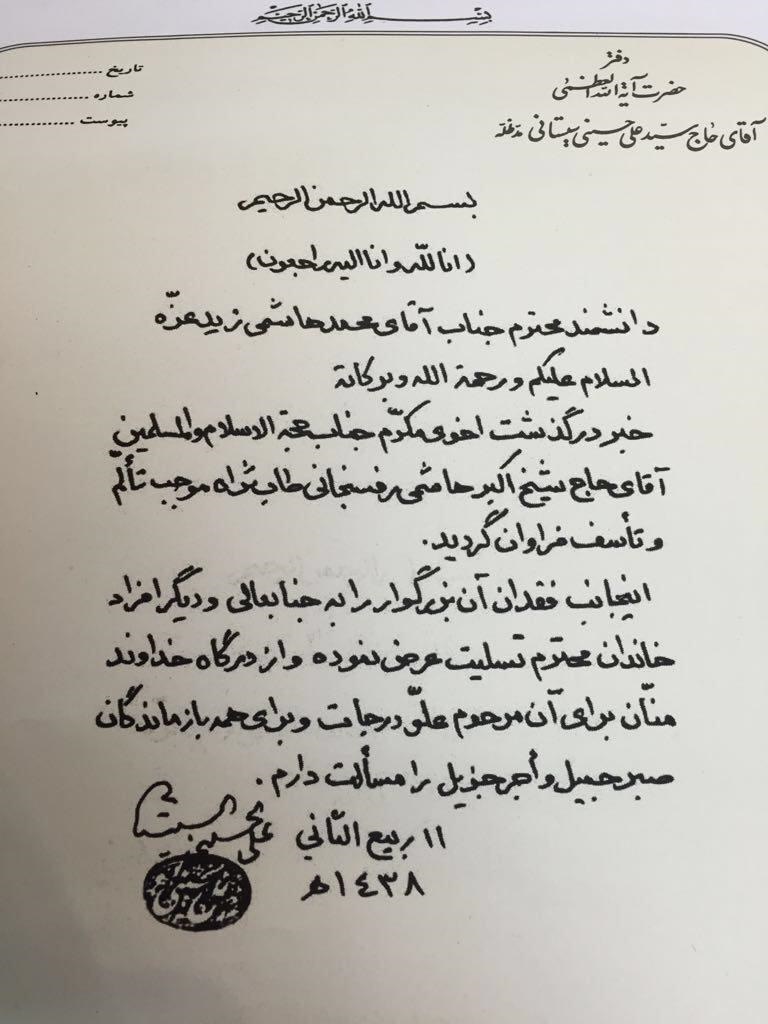 بسم الله الرحمن الرحیم
دفتر
حضرت آیة الله العظمی
آقای حاج سیّد علی حسینی سیستانی مدّظلّه
تاریخ ....................
شماره ....................
پیوست ....................
بسم الله الرحمن الرحیم
(انا للّه وانا الیه راجعون)
دانشمند محترم جناب آقای محمد هاشمی زید عزّه
السلام علیکم ورحمة الله وبرکاته
خبر درگذشت اخوی مکرّم جناب حجة الاسلام والمسلمین
آقای حاج شیخ اکبر هاشمی رفسنجانی طاب ثراه موجب تألّم
و تأسف فراوان گردید.
اینجانب فقدان آن بزرگوار را به جنابعالی و دیگر افراد
خاندان محترم تسلیت عرض نموده و از درگاه خداوند
منّان برای آن مرحوم علوّ درجات و برای همه بازماندگان
صبر جمیل و أجر جزیل را مسألت دارم.
۱۱ ربیع الثّانی
۱٤۳۸ هـ
علی الحسینی السیستانی